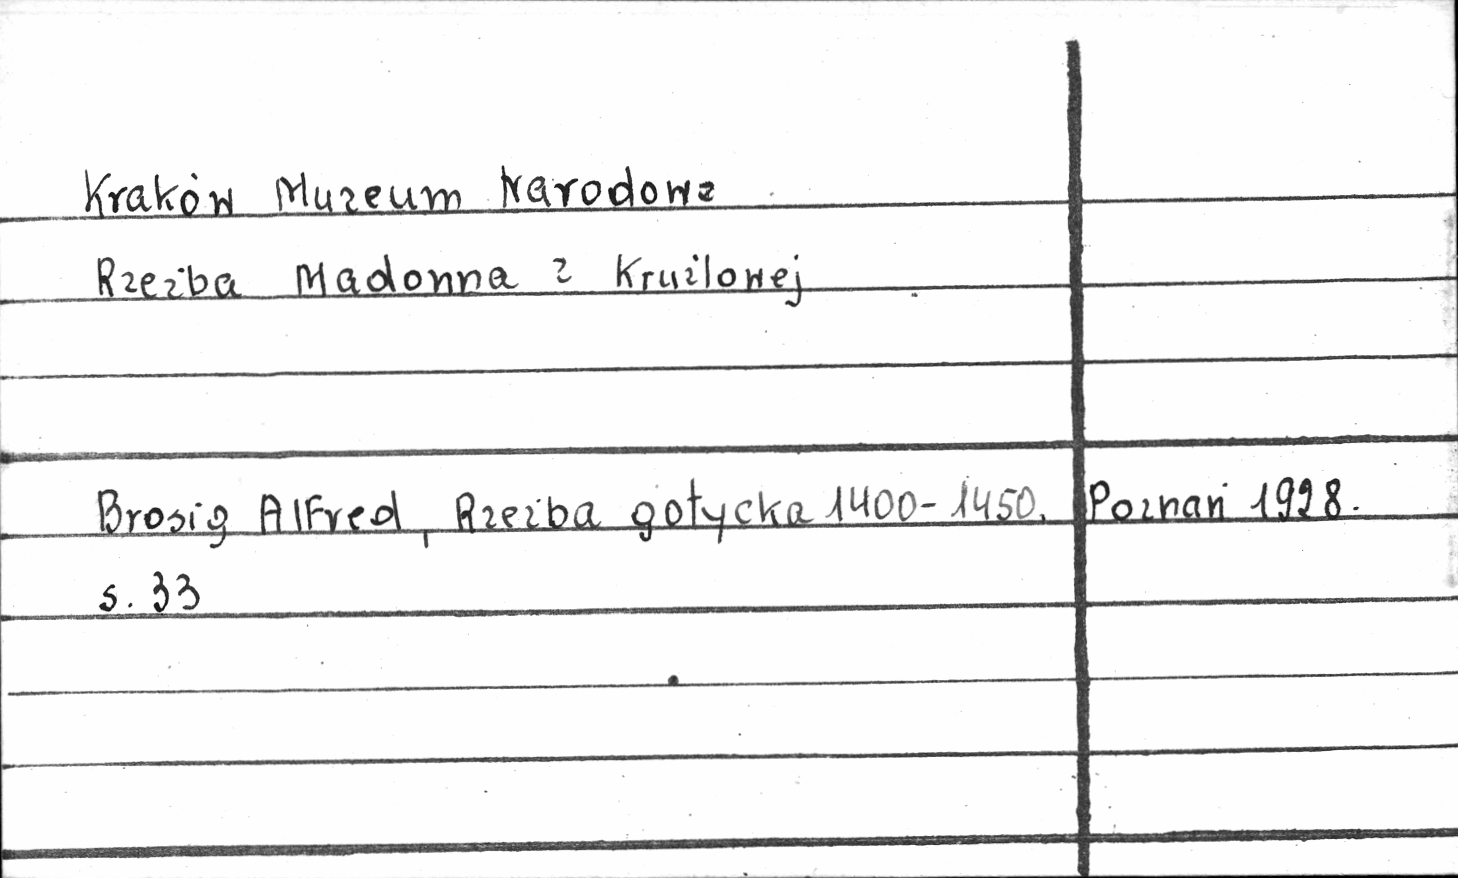 Kraków Muzeum Narodowe
Rzeźba Madonna z Krużlowej
Brosig Alfred, Rzeźba gotycka 1400-1450. Poznań 1928.
s. 33